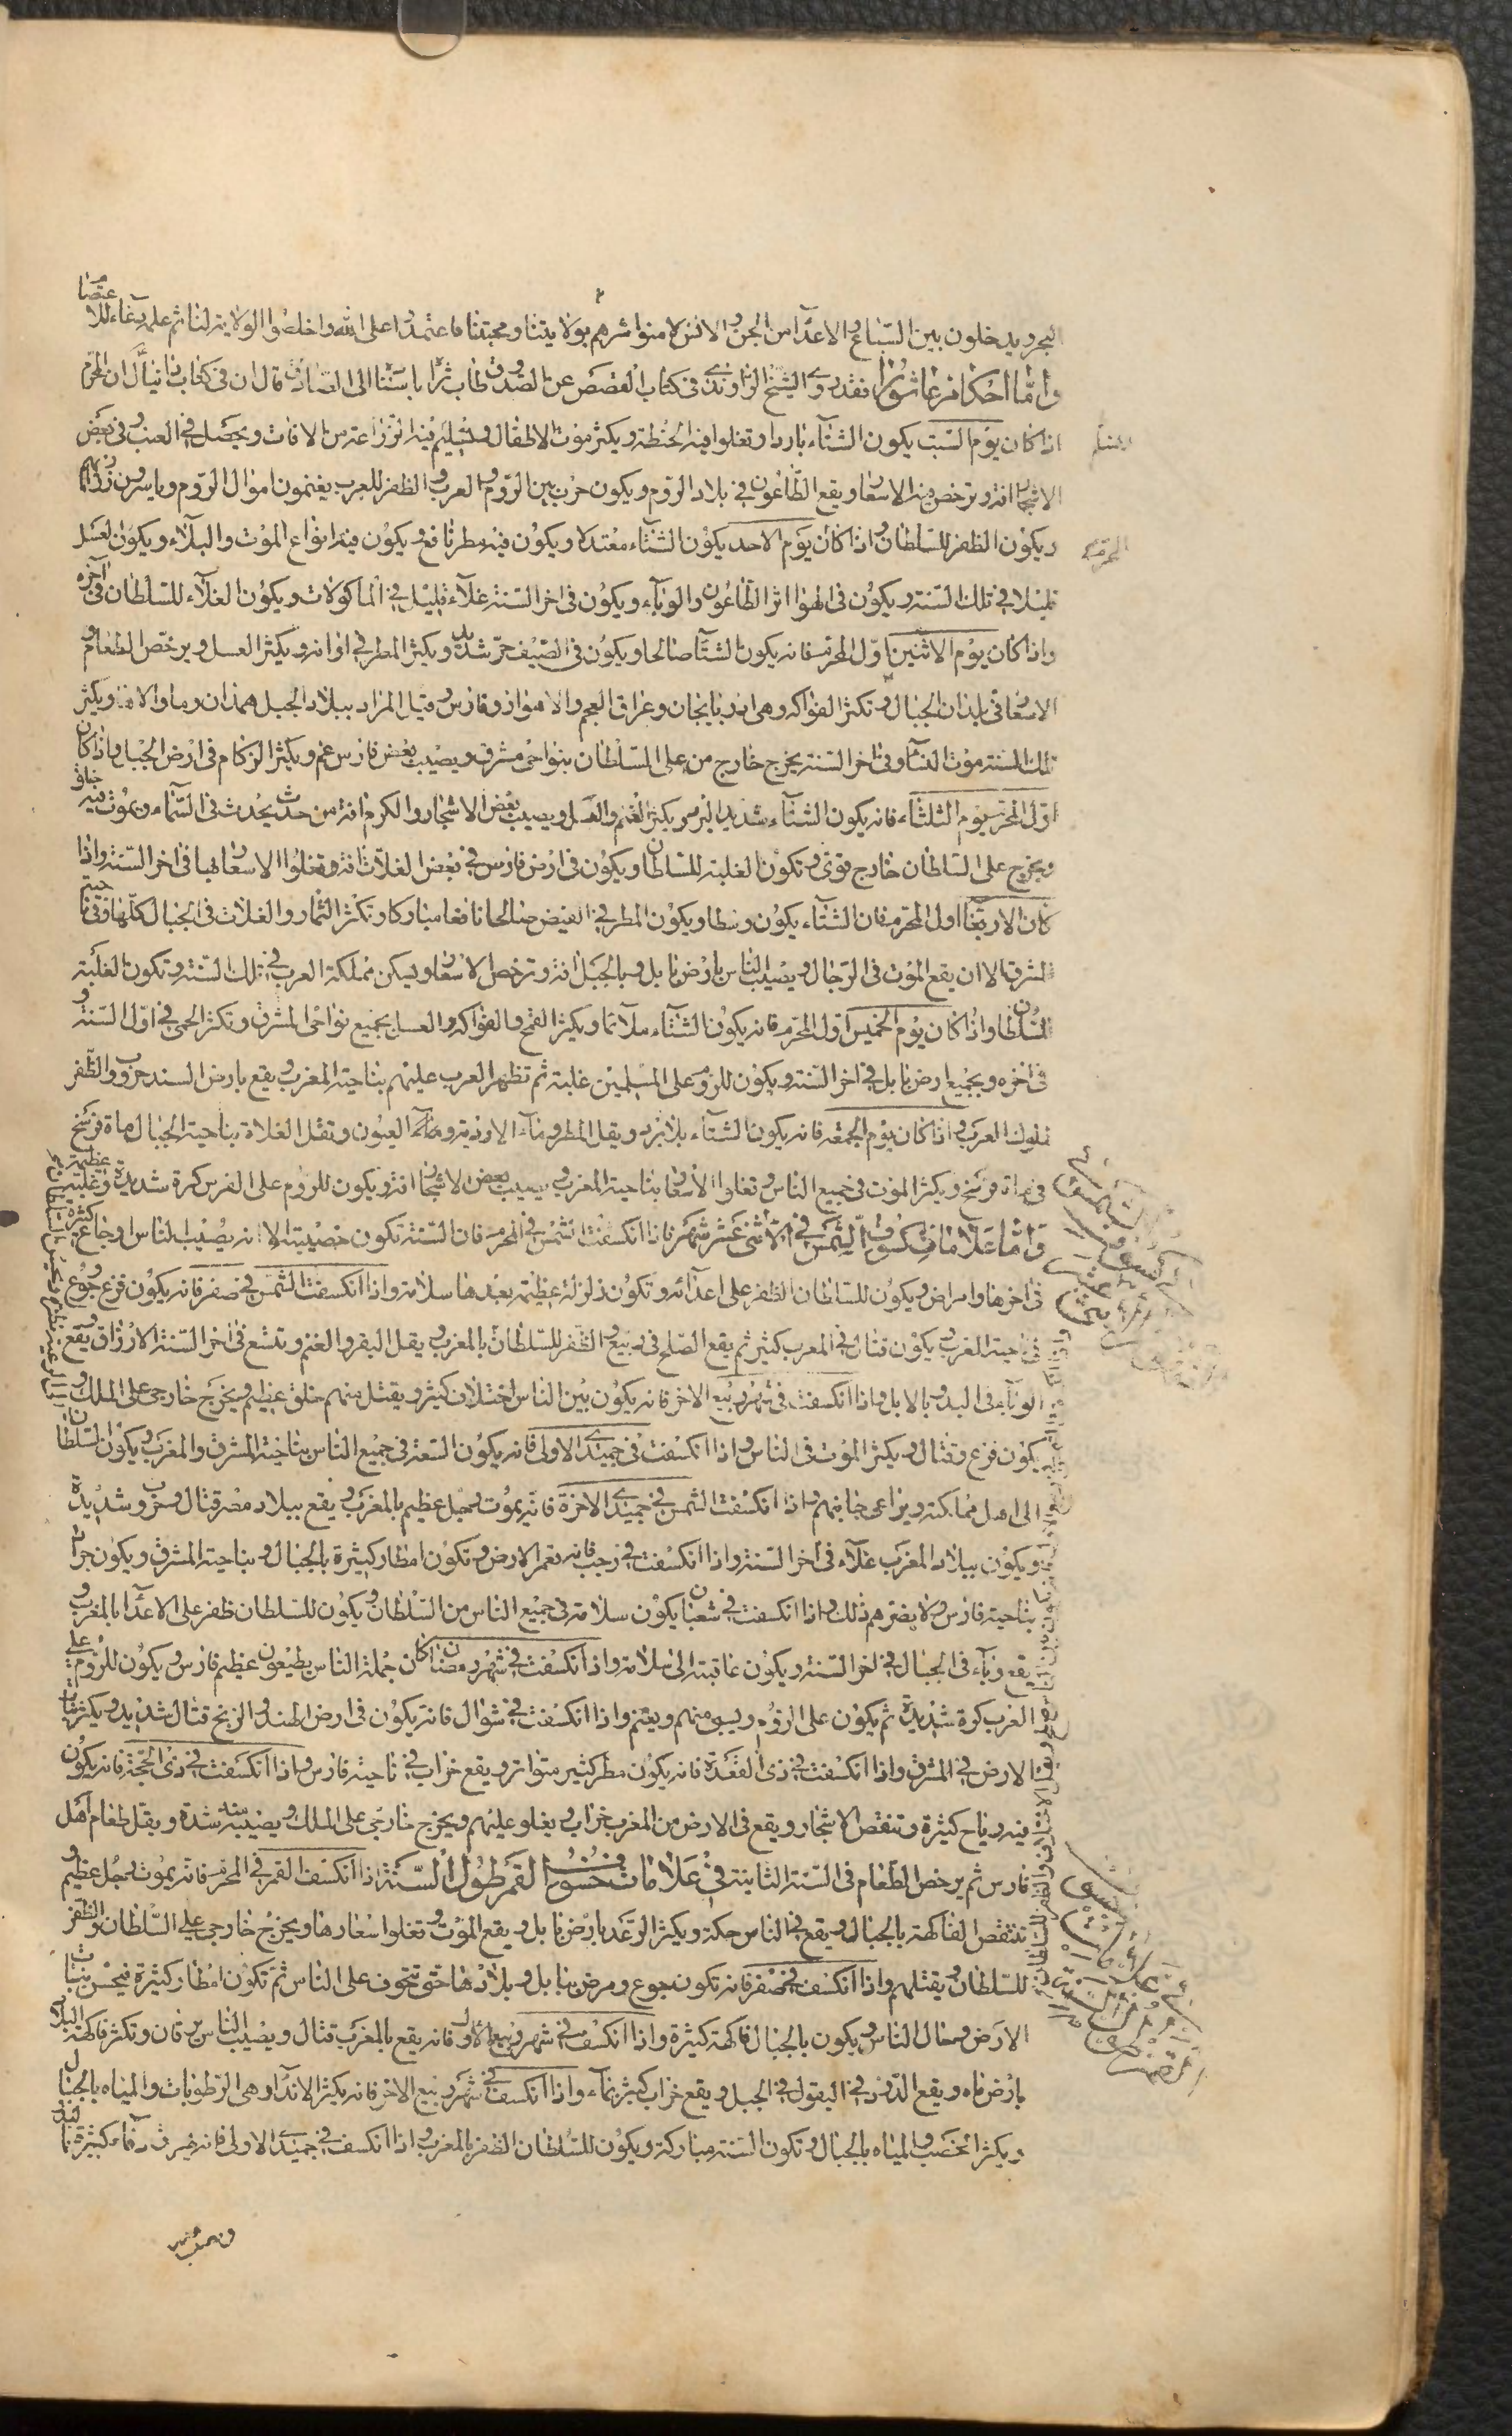 البحر ويدخلون بين السباع والاعدآء من الجن والانس لامنوا شرهم بولايتنا ومحبتنا فاعتمدوا على الله واخلصوا الولاية لنا ثم علمه دعاء للاعتصام
وامّا احكام عاشورا فقد روى الشيخ الراوندى فى كتاب القصص عن الصدوق طاب ثراه باسناده الى الصادق قال ان فى كتاب دانيال ان المحرم
اذا كان يوم السبت يكون الشتآء باردا وتغلوا فيه الحنطة ويكثر موت الاطفال ويسلم فيه الزراعة من الافات ويحصل فى العنب وفى بعض
الاشجار افة وترخص فيه الاسعار ويقع الطاعون فى بلاد الروم ويكون حرب بين الروم والعرب والظفر للعرب يغنمون اموال الروم وياسرون
ويكون الظفر للسلطان واذا كان يوم الاحد يكون الشتآء معتدلا ويكون فيه مطر نافع ويكون فيه انواع الموت والبلآء ويكون العسل
قليلا فى تلك السنة ويكون فى الهوا اثر الطاعون والوبآء ويكون فى اخر السنة غلآء قليل فى الماكولات ويكون الغلآء للسلطان فى اخره
واذا كان يوم الاثنين اول المحرم فانه يكون الشتآء صالحا ويكون فى الصيف حر شديد ويكثر المطر فى اوانه ويكثر العسل ويرخص الطعام و
الاسعار فى بلدان الجبال وتكثر الفواكه وهى اذربايجان وعراق العجم والاهواز وفارس وقيل المراد ببلاد الجبل همدان وما والاها ويكثر
تلك السنة موت النسآء وفى اخر السنة يخرج خارج من على السلطان بنواحى مشرق ويصيب بعض فارس غم ويكثر الزكام فى ارض الجبل واذا كان
اول المحرم يوم الثلثآء فانه يكون الشتآء شديد البرد ويكثر الغنم والعسل ويصيب بعض الاشجار والكرم افة من حدث يحدث فى السمآء ويموت فيه خلق
ويخرج على السلطان خارج قوى وتكون الغلبة للسلطان ويكون فى ارض فارس فى بعض الغلات افة وتغلوا الاسعار بها فى اخر السنة واذا
كان الاربعا اول المحرم فان الشتآء يكون وسطا ويكون المطر فى القيض صالحا نافعا مباركا وتكثر الثمار والغلات فى الجبال كلها وفى ناحية
المشرق الا ان يقع الموت فى الرجال ويصيب الناس بارض بابل وبالجبل افة وترخص الاسعار ويسكن مملكة العرب فى تلك السنة وتكون الغلبة
للسلطان واذا كان يوم الخميس اول المحرم فانه يكون الشتآء ملائما ويكثر القمح والفواكه والعسل بجميع نواحى المشرق وتكثر الحمى فى اول السنة و
فى اخره وبجميع ارض بابل فى اخر السنة ويكون للروم على المسلمين غلبة ثم تظهر العرب عليهم بناحية المغرب ويقع بارض السند حروب والظفر
لملوك العرب واذا كان يوم الجمعة فانه يكون الشتآء بلا برد ويقل المطر ومآء الاودية ومآء العيون وتقل الغلاة بناحية الجبال ماة فرسخ
فى ماة فرسخ ويكثر الموت فى جميع الناس وتغلوا الاسعار بناحية المغرب ويصيب بعض الاشجار افة ويكون للروم على الفرس كرة شديدة
وامّا علامات كسوف الشمس فى الاثنى عشر شهر فاذا انكسفت الشمس فى المحرم فان السنة تكون خصيبة الا انه يصيب الناس اوجاع كثيرة
فى اخرها وامراض ويكون للسلطان الظفر على اعدآئه وتكون زلزلة عظيمة بعدها سلامة واذا انكسفت الشمس فى صفر فانه يكون فزع وجوع
فى ناحية المغرب ويكون قتال فى المغرب كثير ثم يقع الصلح فى ربيع والظفر للسلطان بالمغرب يقل البقر والغنم وتتسع فى اخر السنة الارزاق ويقع
الوبآء فى البدو بالابل واذا انكسفت فى شهر ربيع الاخر فانه يكون بين الناس اختلاف كثير ويقتل منهم خلق عظيم ويخرج خارجى على الملك و
يكون فزع وقتال ويكثر الموت فى الناس واذا انكسفت فى جميدى الاولى فانه يكون السعة فى جميع الناس بناحية المشرق والمغرب ويكون السلطان
الى اهل مملكته ويراعى جانبهم واذا انكسفت الشمس فى جميدى الاخرة فانه يموت رجل عظيم بالمغرب ويقع ببلاد مصر قتال وحروب شديدة
ويكون ببلاد المغرب غلآء فى اخر السنة واذا انكسفت فى رجب فانه تعمر الارض وتكون امطار كثيرة بالجبال وبناحية المشرق ويكون جراد
بناحية فارس ولا يضرهم ذلك واذا انكسفت فى شعبان يكون سلامة فى جميع الناس من السلطان ويكون للسلطان ظفر على الاعدآء بالمغرب و
يقع وبآء فى الجبال فى اخر السنة ويكون عاقبته الى سلامة واذا انكسفت فى شهر رمضان كان جملة الناس يطيعون عظيم فارس ويكون للروم على
العرب كرة شديدة ثم يكون على الروم ويسبى منهم ويغنم واذا انكسفت فى شوال فانه يكون فى ارض الهند والزنج قتال شديد ويكثر نبات
الارض فى المشرق واذا انكسفت فى ذى القعدة فانه يكون مطر كثير متواتر ويقع خراب فى ناحية فارس واذا انكسفت فى ذى الحجة فانه يكون
فيه رياح كثيرة وتنقص الاشجار ويقع فى الارض من المغرب خراب ويغلو عليهم ويخرج خارجى على الملك ويصيبه منه شدة ويقل طعام اهل
فارس ثم يرخص الطعام فى السنة الثانية فى علامات خسوف القمر طول السنة اذا انكسف القمر فى المحرم فانه يموت رجل عظيم و
تنتقص الفاكهة بالجبال ويقع فى الناس حكة ويكثر الرمد بارض بابل ويقع الموت وتغلوا اسعارها ويخرج خارجى على السلطان والظفر
للسلطان ويقتلهم واذا انكسف فى صفر فانه تكون جوع ومرض ببابل وبلادها حتى تتخوف على الناس ثم تكون امطار كثيرة فيحسن نبات
الارض وحال الناس ويكون بالجبال فاكهة كثيرة واذا انكسف فى شهر ربيع الاول فانه يقع بالمغرب قتال ويصيب الناس يرقان وتكثر فاكهة البلاد
بارض ماه ويقع الدود فى البقول فى الجبل ويقع خراب كثير بماه واذا انكسف فى شهر ربيع الاخر فانه يكثر الاندآء وهى الرطوبات والمياه بالجبال
ويكثر الخصب والمياه بالجبال وتكون السنة مباركة ويكون للسلطان الظفر بالمغرب واذا انكسف فى جميدى الاولى فانه تهرق دمآء كثيرة بالبدو